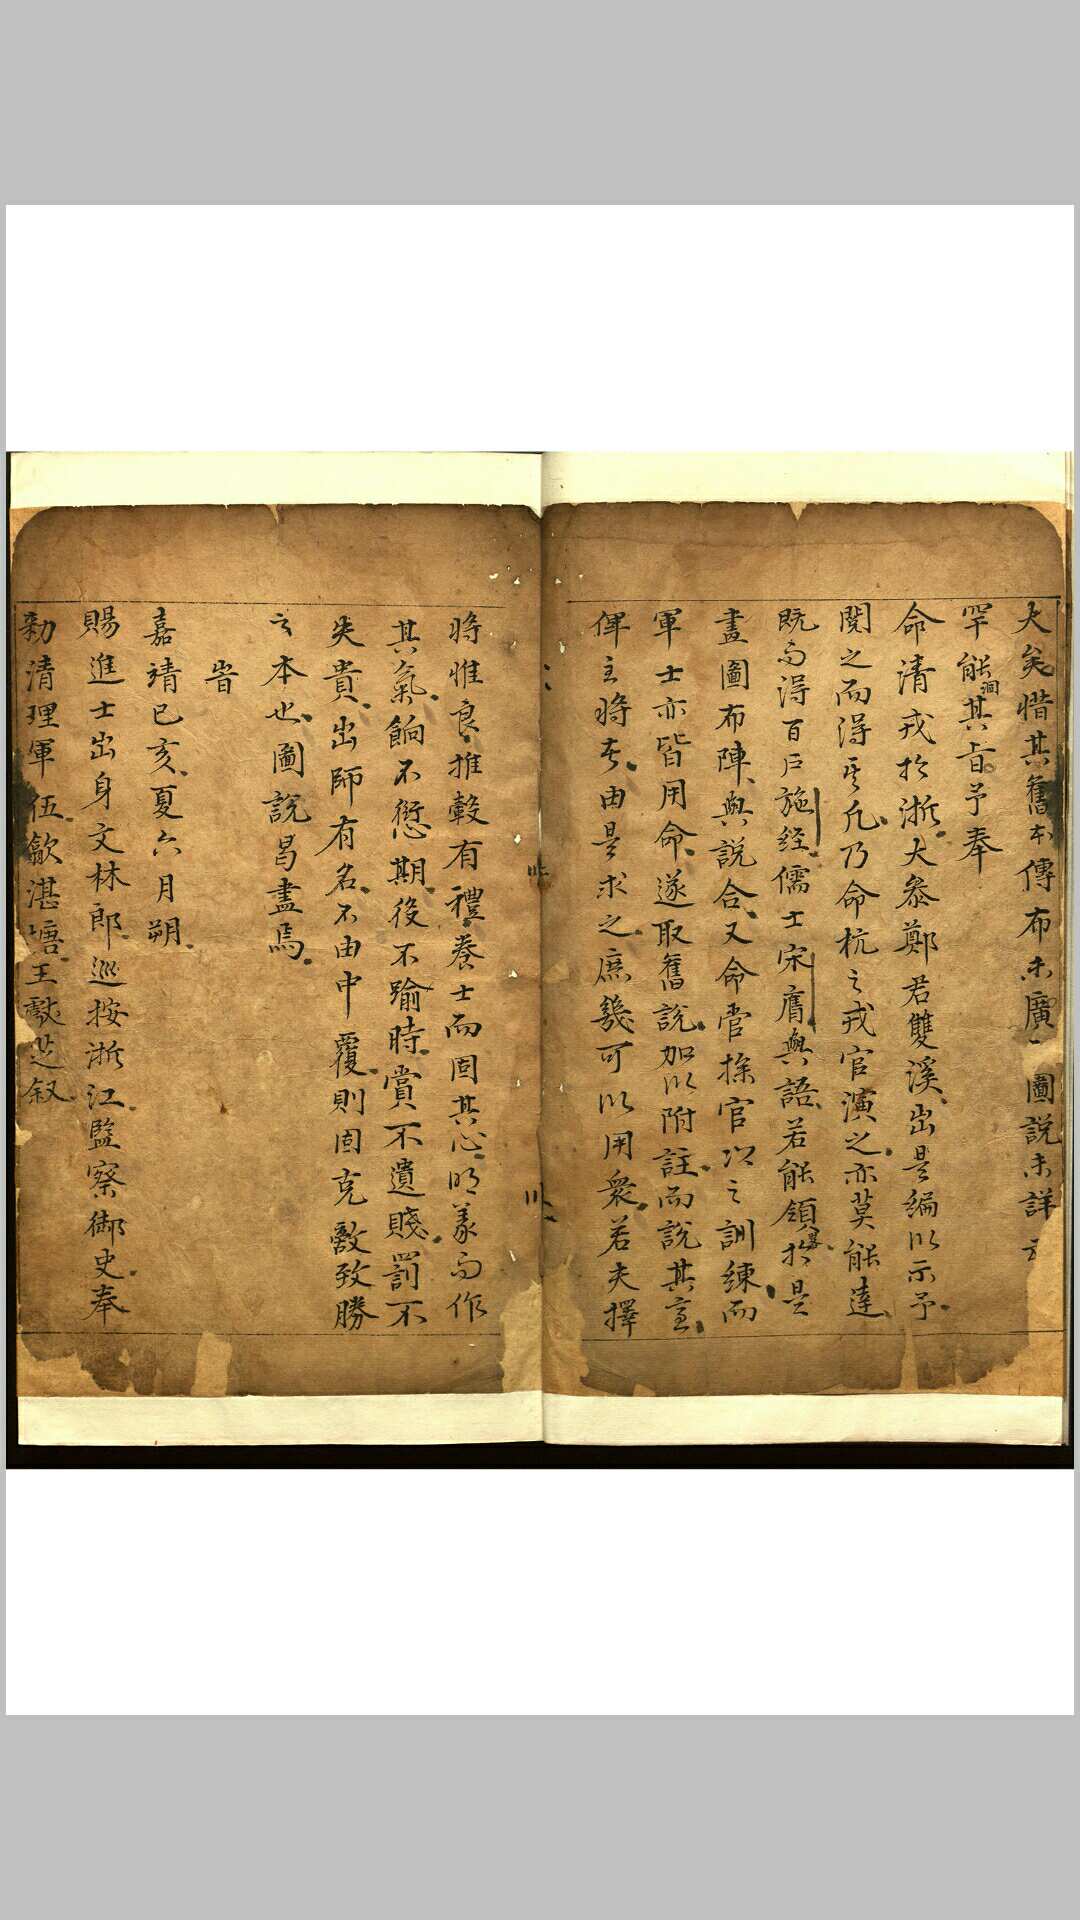 大矣惜其舊本傳布未廣圖說未詳
罕能洞其旨予奉
命清戎於浙大參鄭君雙溪出是編以示予
閱之而得其凡乃命杭之戎官演之亦莫能達
既而得百戶施經儒士宋膺與語若能領畧於是
畫圖布陣與說合又命管操官以之訓練而
軍士亦皆用命遂取舊說加以附註而說其意
俾主將者由是求之庶幾可以用衆若夫擇
將惟良推轂有禮養士而固其心明義而作
其氣餉不愆期役不踰時賞不遺賤罰不
失貴出師有名不由中覆則固克敵致勝
之本也圖說曷盡焉
旹
嘉靖己亥夏六月朔
賜進士出身文林郎巡按浙江監察御史奉
勅清理軍伍歙湛塘王瑴叙